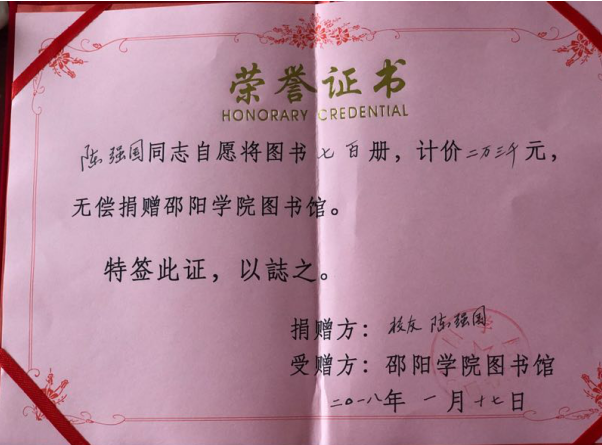 荣誉证书
HONORARY CREDENTIAL
陈强国同志自愿将图书七百册，计价二万三千元，
无偿捐赠邵阳学院图书馆。
特签此证，以誌之。
捐赠方：校友 陈强国
受赠方：邵阳学院图书馆
二〇一八年一月十七日